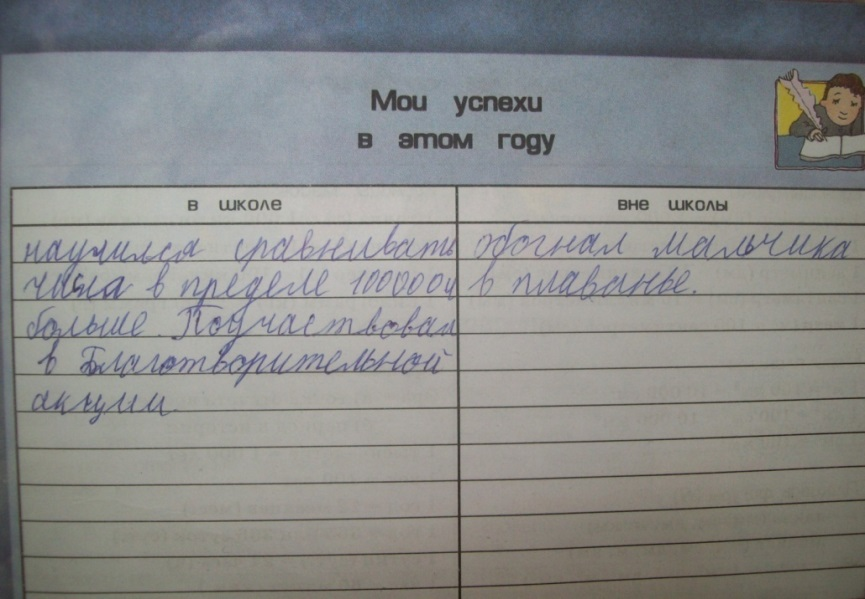 Мои успехи
в этом году
в школе
вне школы
научился сравнивать
числа в пределе 1000000 и
больше. Поучаствовал
в Благотворительной
акции.
обогнал мальчика
в плаванье.